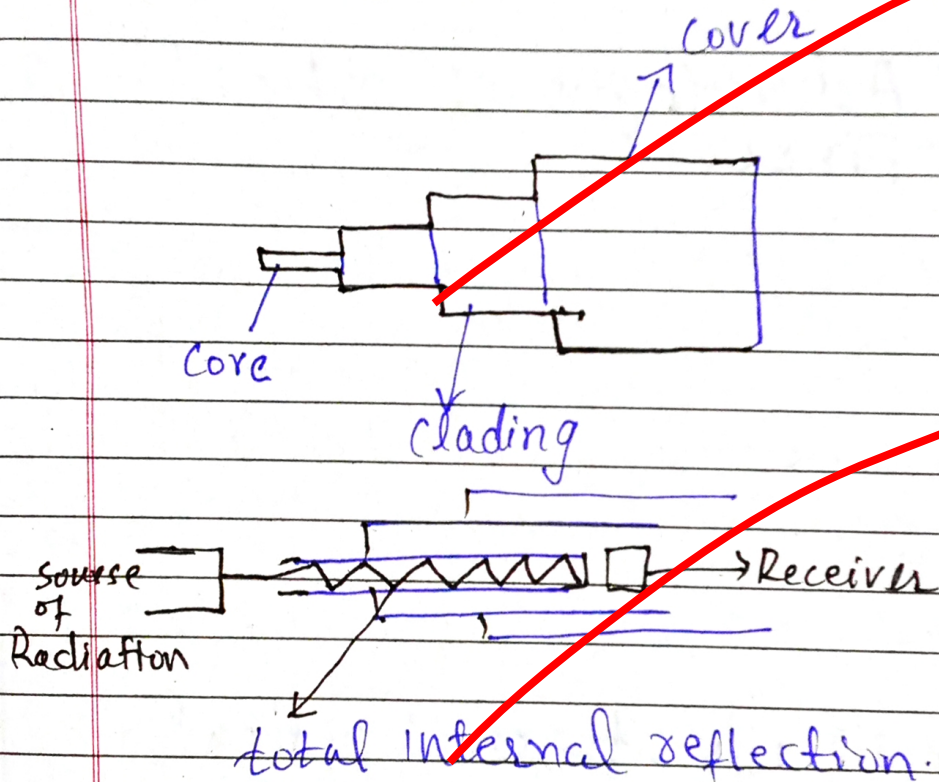 cover
Core
Clading
sourse
of
Radiation
Receiver
total internal reflection.